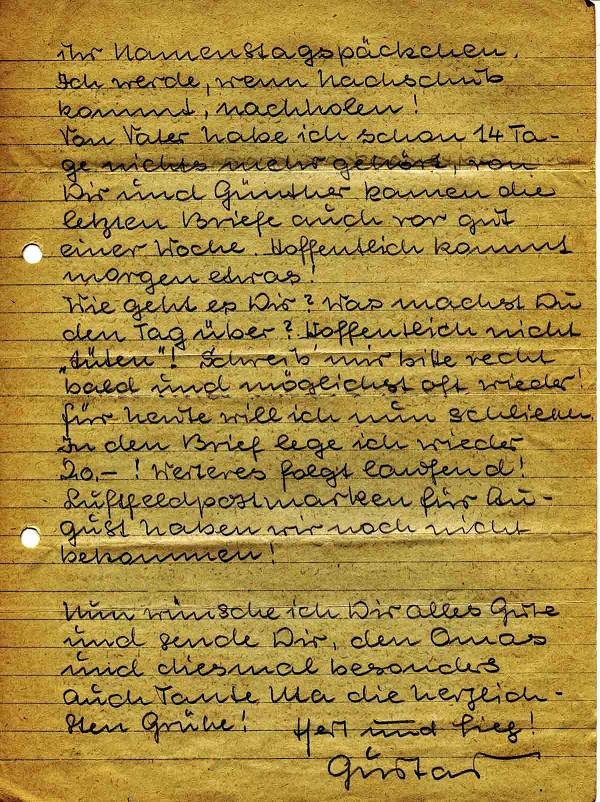 ihr Namenstagspäckchen.
Ich werde, wenn Nachschub
kommt, nachholen!
Von Vater habe ich schon 14 Ta-
ge nichts mehr gehört, von
Dir und Günther kamen die
letzten Briefe auch vor gut
einer Woche. Hoffentlich kommt
morgen etwas!
Wie geht es Dir? Was machst Du
den Tag über? Hoffentlich nicht
„tüten"! Schreib' mir bitte recht
bald und möglichst oft wieder!
Für heute will ich nun schließen.
In den Brief lege ich wieder
20,- ! Weiteres folgt laufend!
Luftfeldpostmarken für Au-
gust haben wir noch nicht
bekommen!
Nun wünsche ich Dir alles Gute
und sende Dir, den Omas
und diesmal besonders
auch Tante Uta die herzlich-
sten Grüße! Heil und Sieg!
Gustav